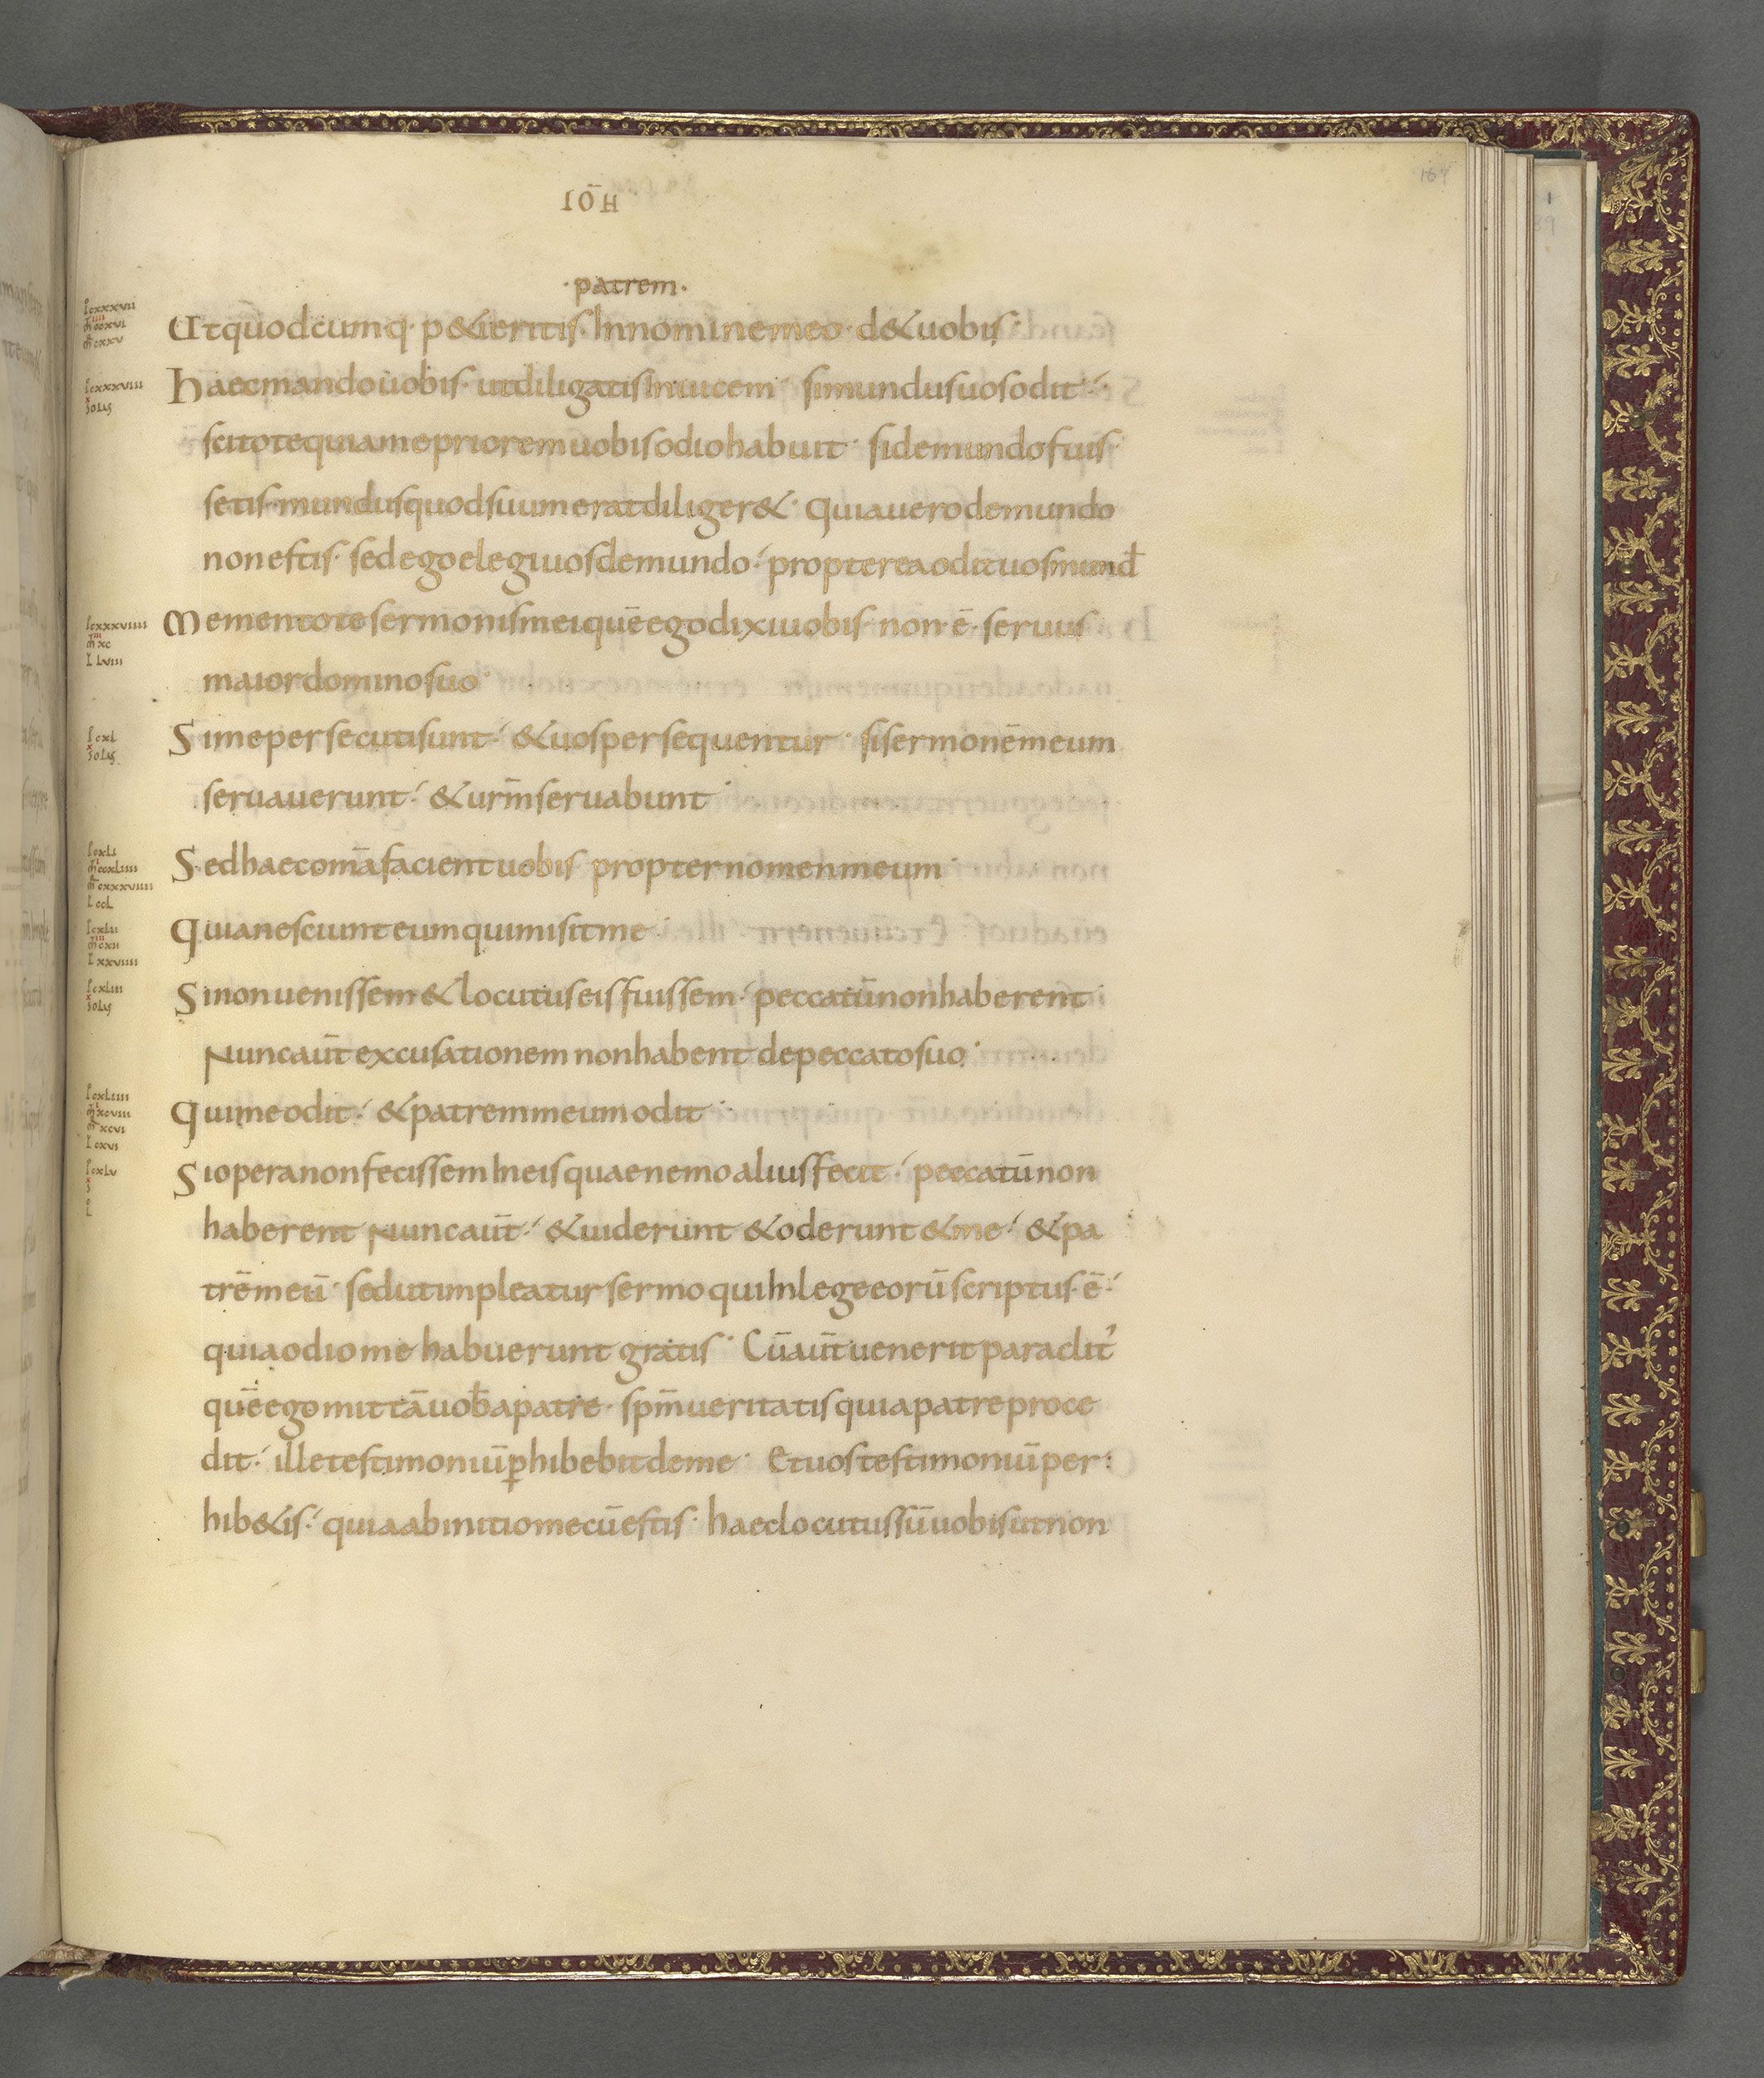 IŌH
167
·patrem·
Utquodcumq· p&ieritis· Innomine meo· d&uobis·
haecmandouobis· utdiligatisInuicem· simundusuosodit·
scitotequiamepriorem uobisodiohabuit· sidemundofuis
setis· mundusquodsuum eratdiliger&· quiauerodemundo
nonestis· sedegoelegiuosdemundo· propterea odituosmund
Mementote sermonismeiquē egodixiuobis· non·ē· seruus
maiordominosuo·
Simepersecutisunt· &uospersequentur· sisermonēmeum
seruauerunt· &urm̄seruabunt·
Sedhaecom̄afacientuobis propternomenmeum·
Quianesciunteumquimisitme·
Sinonuenissem&locutuseisfuissem· peccatūnonhaberent·
Nuncaūt excusationem nonhabent depeccatosuo·
Quimeodit· &patremmeumodit·
Sioperanonfecissem Ineisquaenemoaliusfecit· peccatūnon
haberent Nuncaūt· &uiderunt &oderunt&me· &pa
trēmeū· sedutimpleatur sermo quiInlegeeorū scriptus·ē·
quiaodiome habuerunt gratis· Cūaūtuenerit paraclit'
quēegomittāuob̄apatre· spm̄ueritatis quiapatreproce
dit· illetestimoniūꝑhibebitdeme· Etuostestimoniūper
hib&is· quiaabinitiomecūestis· haeclocutussūuobisutnon